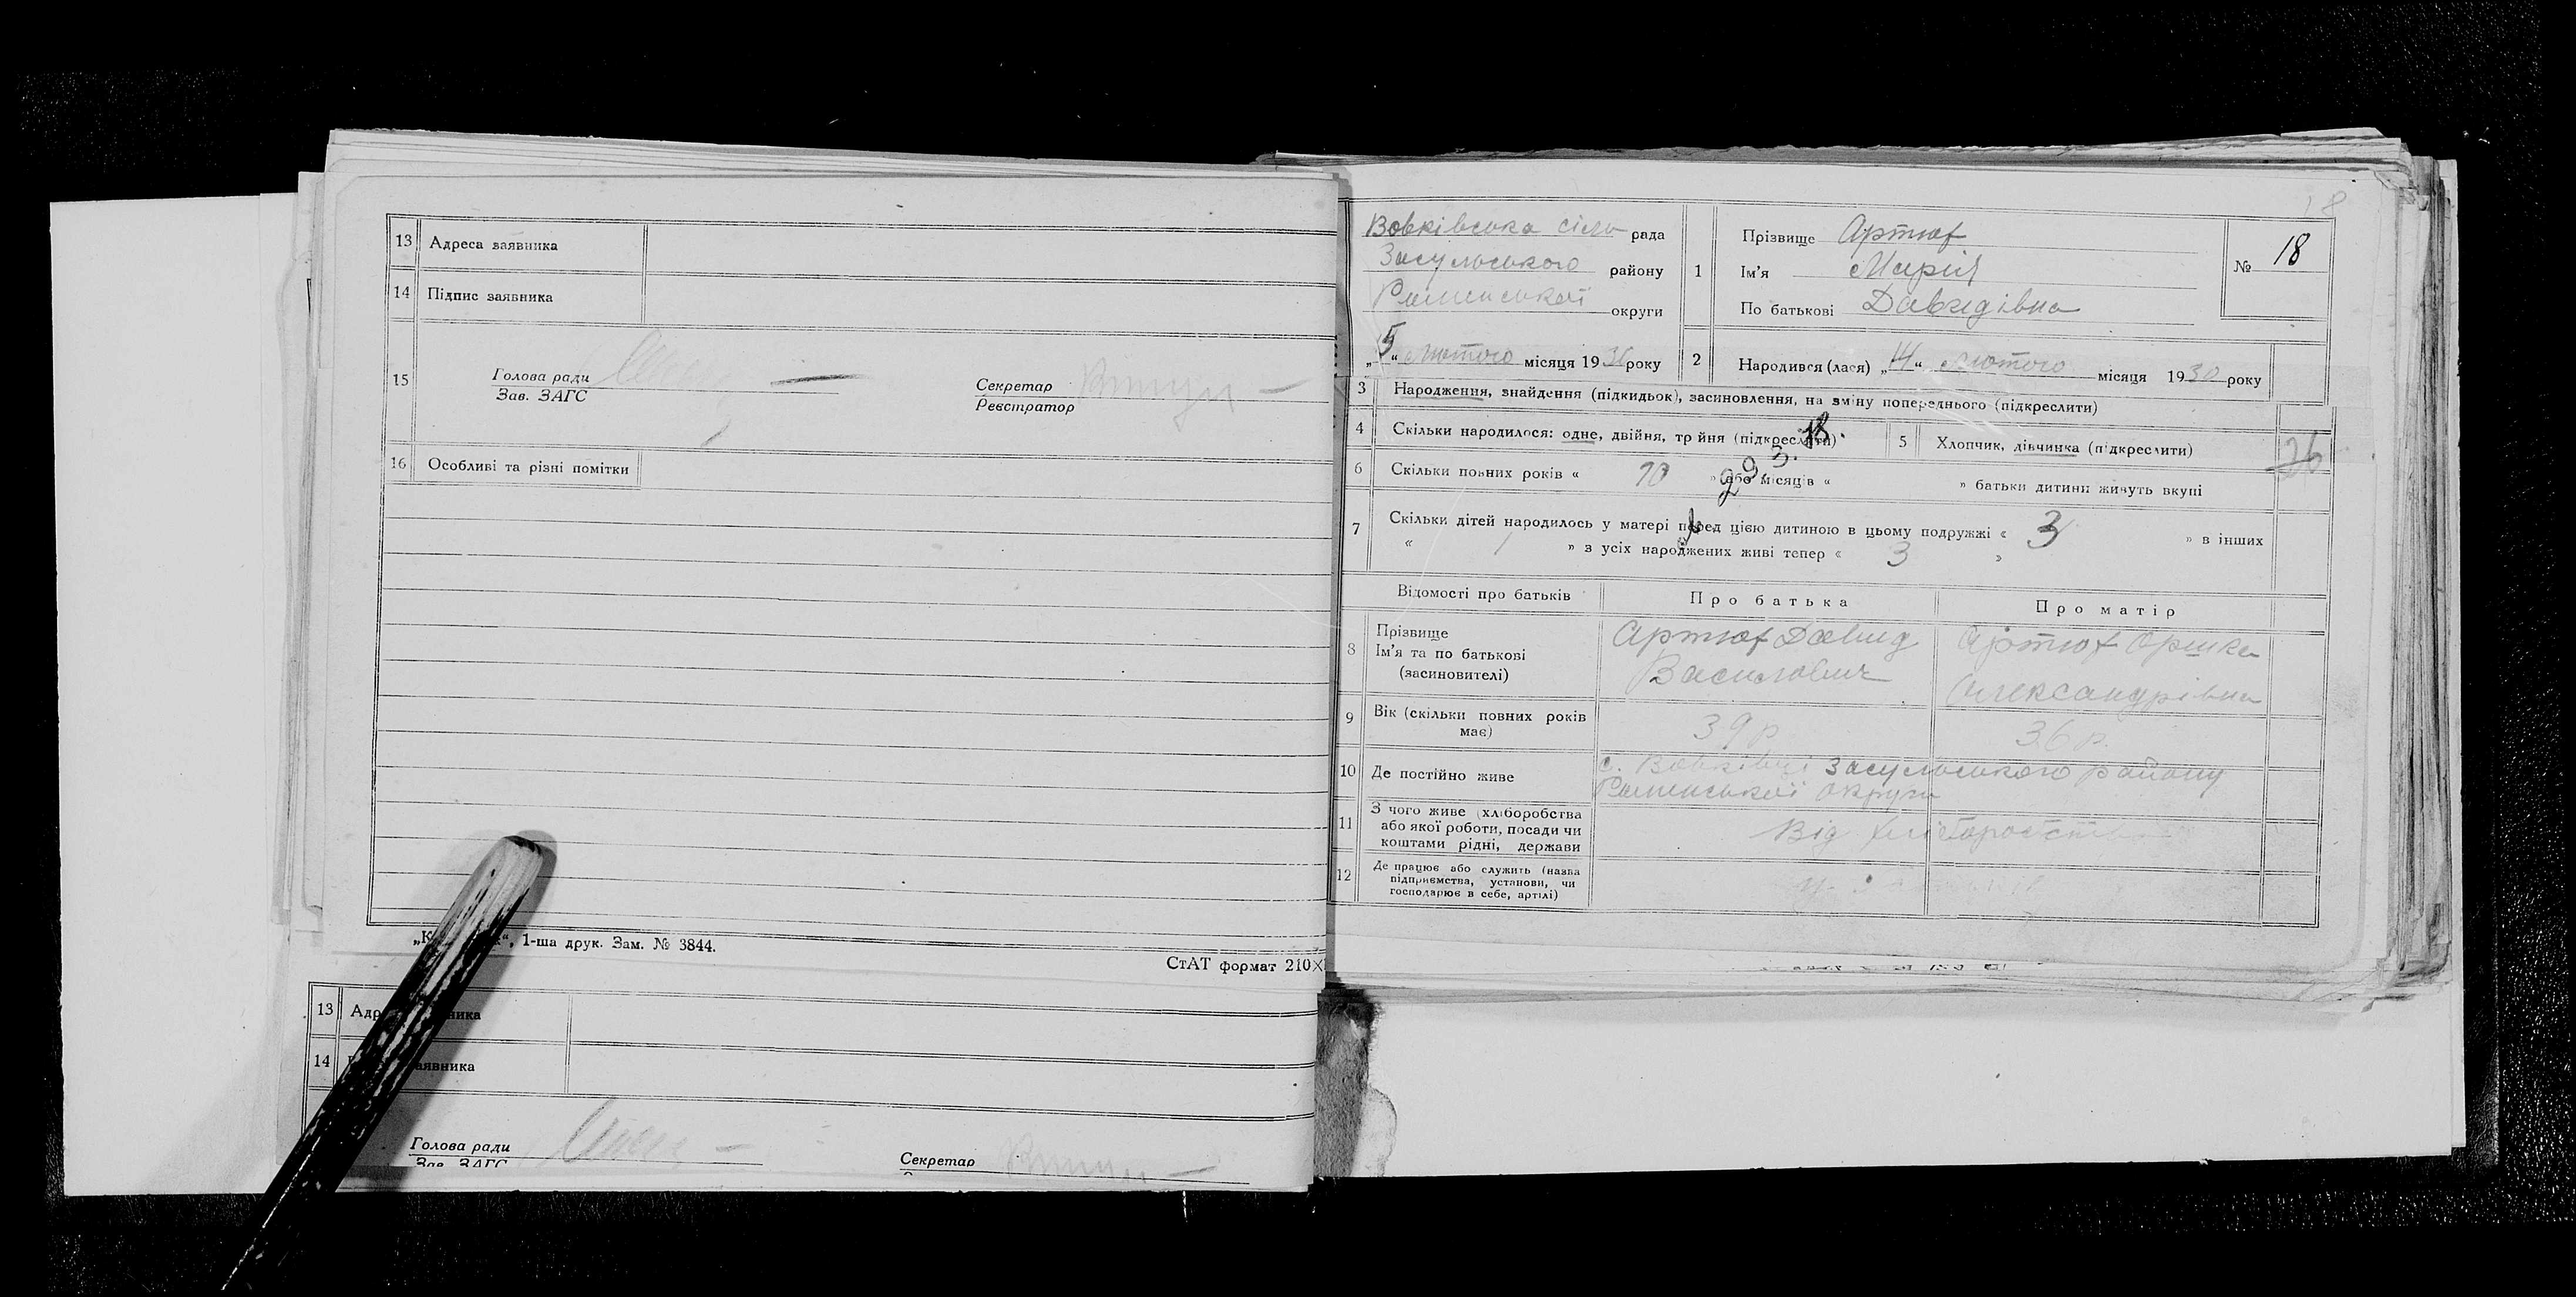 13 Адреса заявника
14 Підпис заявника
15 Голова ради
Зав. ЗАГС
Секретар
Реєстратор
16 Особливі та різні помітки
1-ша друк. Зам. № 3844.
СтАТ формат 210×
13
14
аявника
Голова ради
Зав. ЗАГС
Секретар
18
Вовківська сіль рада
Засульського району
Роменської округи
„5“ лютого місяця 1930 року
1 Прізвище Артюх
Ім'я Марія
По батькові Давидівна
№ 18
2 Народився (лася) „14“ лютого місяця 1930 року
3 Народження, знайдення (підкидьок), засиновлення, на зміну попереднього (підкреслити)
4 Скільки народилося: одне, двійня, трійня (підкреслити)
5 Хлопчик, дівчинка (підкреслити)
26
6 Скільки повних років « 10 » або місяців « » батьки дитини живуть вкупі
7 Скільки дітей народилось у матері перед цією дитиною в цьому подружжі « 3 » в інших
« » з усіх народжених живі тепер « 3 »
Відомості про батьків
Про батька
Про матір
8 Прізвище
Ім'я та по батькові
(засиновителі)
Артюх Давид
Василович
Артюх Оришка
Олександрівна
9 Вік (скільки повних років
має)
39 р.
36 р.
10 Де постійно живе
с. Вовківці Засульського району
Роменської округи
11 З чого живе (хліборобства
або якої роботи, посади чи
коштами рідні, держави
Від
12 Де працює або служить (назва
підприємства, установи, чи
господарює в себе, артілі)